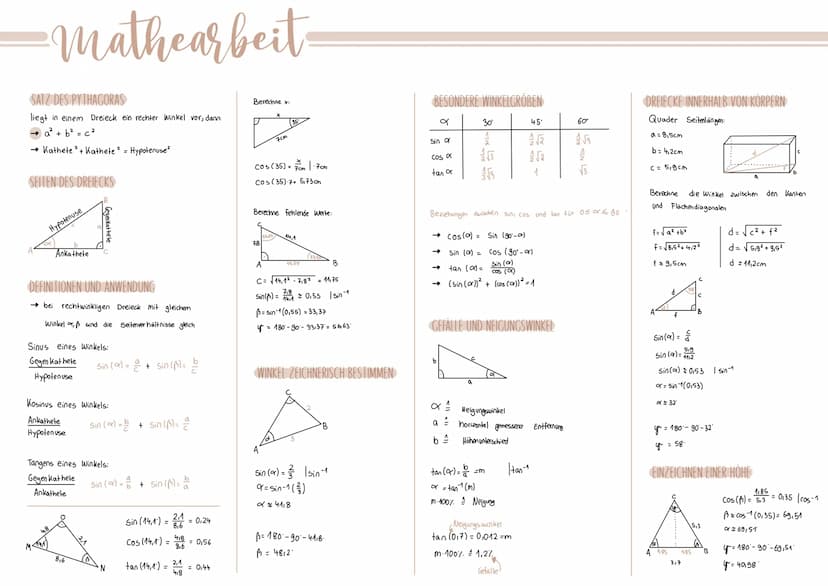 Mathearbeit
SATZ DES PYTHAGORAS
liegt in einem Dreieck ein rechter Winkel vor, dann
→ a² + b² = c²
→ Kathete² + Kathete² = Hypotenuse²
SEITEN DES DREIECKS
Hypotenuse
Gegenkathete
Ankathete
A
B
C
DEFINITIONEN UND ANWENDUNG
→ bei rechtwinkligen Dreieck mit gleichen
Winkel α, β und die Seitenverhältnisse gleich
Sinus eines Winkels:
Gegenkathete
Hypotenuse
sin(α) = a/c + sin(β) = b/c
Kosinus eines Winkels:
Ankathete
Hypotenuse
sin(α) = b/c + sin(β) = a/c
Tangens eines Winkels:
Gegenkathete
Ankathete
sin(α) = a/b + sin(β) = b/a
M
O
N
4,8
2,1
8,6
sin(14,1°) = 2,1/8,6 = 0,24
cos(14,1°) = 4,8/8,6 = 0,56
tan(14,1°) = 2,1/4,8 = 0,44
Berechne x:
x
35°
7cm
cos(35) = x/7cm | ·7cm
cos(35)·7 = 5,73cm
Berechne fehlende Werte:
C
7,8
14,1
A
B
c = √14,1² - 7,8² = 11,75
sin(β) = 7,8/14,1 ≈ 0,55 | sin⁻¹
β = sin⁻¹(0,55) = 33,37
γ = 180 - 90 - 33,37 = 56,63
WINKEL ZEICHNERISCH BESTIMMEN
C
2
B
3
A
α
sin(α) = 2/3 | sin⁻¹
α = sin⁻¹(2/3)
α ≈ 41,8
β = 180° - 90° - 41,8°
β = 48,2°
BESONDERE WINKELGRÖßEN
α 30° 45° 60°
sin α 1/2 1/2√2 1/2√3
cos α 1/2√3 1/2√2 1/2
tan α 1/3√3 1 √3
Beziehungen zwischen sin, cos und tan für 0≤α≤90
→ cos(α) = sin(90-α)
→ sin(α) = cos(90-α)
→ tan(α) = sin(α)/cos(α)
→ (sin(α))² + (cos(α))² = 1
GEFÄLLE UND NEIGUNGSWINKEL
b
c
a
α
α ≙ Neigungswinkel
a ≙ horizontal gemessene Entfernung
b ≙ Höhenunterschied
tan(α) = b/a = m | tan⁻¹
α = tan⁻¹(m)
m·100% ≙ Neigung
Neigungswinkel
tan(0,7) = 0,012 = m
m·100% ≙ 1,2%
Gefälle
DREIECKE INNERHALB VON KÖRPERN
Quader Seitenlängen
a = 8,5cm
b = 4,2cm
c = 5,9cm
d
f
c
b
a
Berechne die Winkel zwischen den Kanten
und Flächendiagonalen
f = √a² + b²
f = √8,5² + 4,2²
f ≈ 9,5cm
d = √c² + f²
d = √5,9² + 9,5²
d ≈ 11,2cm
C
d
c
A
f
B
sin(α) = c/d
sin(α) = 5,9/11,2
sin(α) ≈ 0,53 | sin⁻¹
α = sin⁻¹(0,53)
α ≈ 32°
γ = 180° - 90 - 32°
γ = 58°
EINZEICHNEN EINER HÖHE
C
5,3
A 1,85 1,85 B
3,7
cos(β) = 1,85/5,3 = 0,35 | cos⁻¹
β = cos⁻¹(0,35) = 69,51
α = 69,51°
γ = 180° - 90° - 69,51°
γ = 40,98°